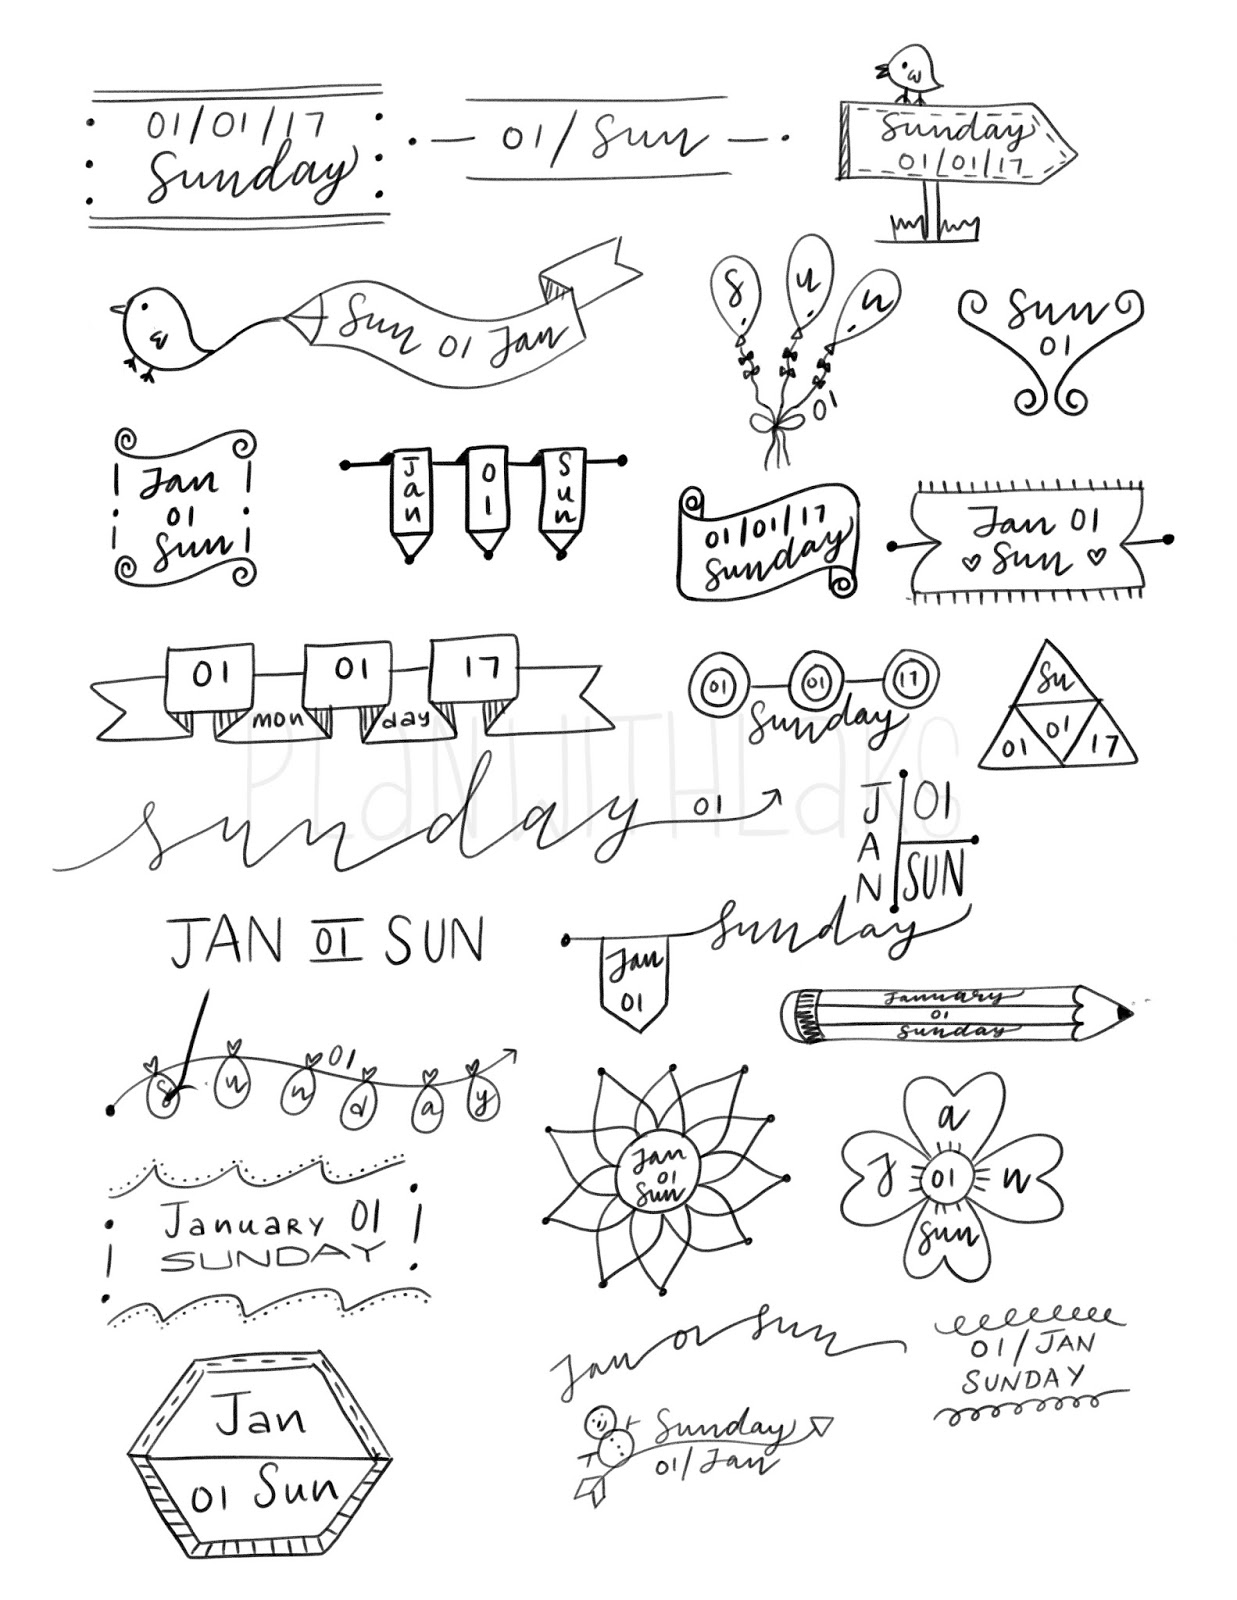 01/01/17
Sunday
01/Sun
Sunday
01/01/17
Sun 01 Jan
Sun
01
Sun
01
Jan
01
Sun
Jan
01
Sun
01/01/17
Sunday
Jan 01
Sun
01 01 17
mon day
01 01 17
Sunday
Su
01 01 17
PLANWITHLAKS
sunday 01
JAN
01
SUN
JAN 01 SUN
Sunday
Jan
01
January
01
Sunday
01
Sunday
Jan
01
Sun
a
J 01 n
Sun
January 01
SUNDAY
Jan 01 Sun
01/JAN
SUNDAY
Jan
01 Sun
Sunday
01/Jan